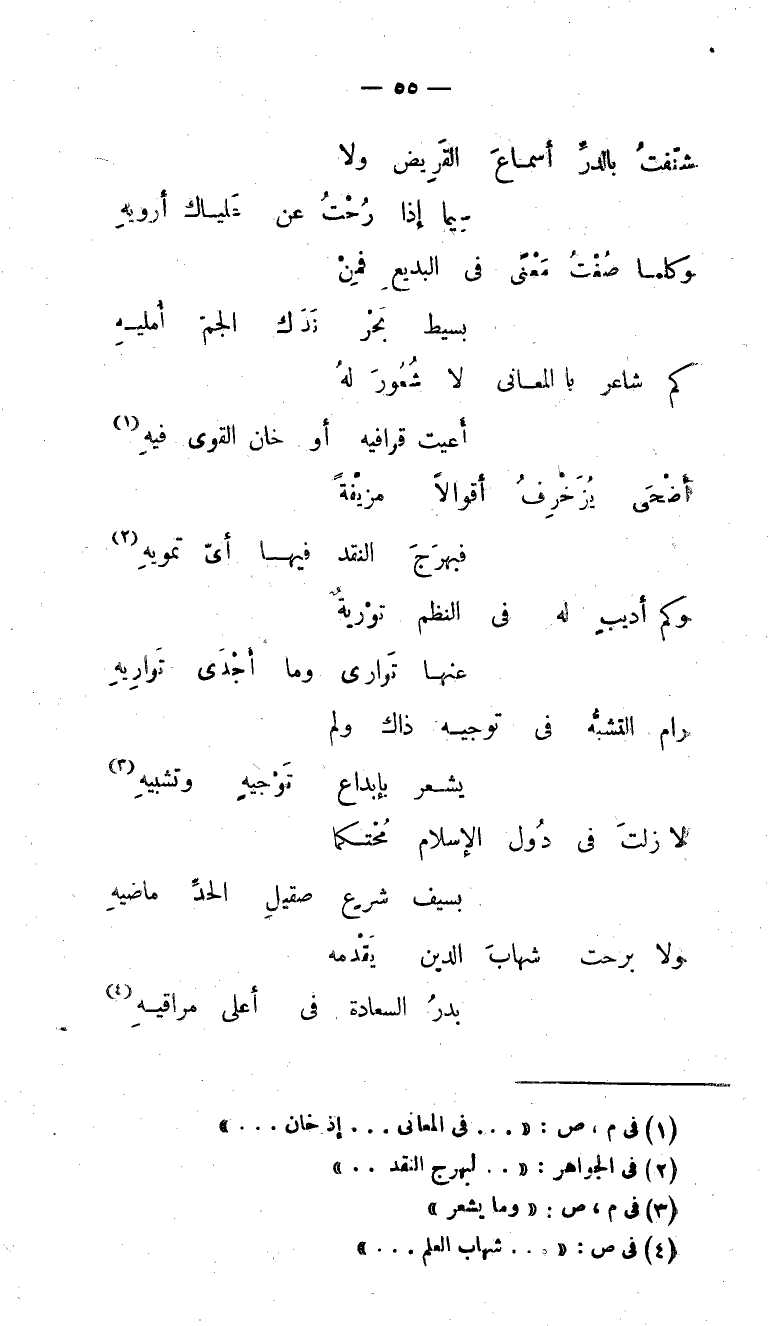 — ٥٥ —
شنّفتُ بالدرِّ أسماعَ القَرِيض ولا
سِيما إذا رُحْتُ عن عَلياك أرويهِ
وكلما صُغْتُ مَعْنًى فى البديعِ فمِنْ
بسيط بَحْرِ نَدَاك الجمّ أمليهِ
كم شاعر بالمعانى لا شُعُورَ لهُ
أعيت قوافيه أو خان القوى فيهِ (١)
أضْحَى يُزَخْرِفُ أقوالاً مزيّفةً
فبهرَجَ النقد فيها أىّ تمويهِ (٢)
وكم أديبٍ له فى النظم توْريةٌ
عنها تَوارى وما أجْدَى تَوارِيهِ
رام التشبُّه فى توجيه ذاك ولم
يشعر بإبداع تَوْجيهٍ وتشبيهِ (٣)
لا زلتَ فى دُول الإسلام مُحْتكما
بسيف شرعٍ صقيلِ الحدِّ ماضيهِ
ولا برحت شهابَ الدين يَقْدمه
بدرُ السعادة فى أعلى مراقيهِ (٤)
(١) فى م ، ص : « ... فى المعانى ... إذ خان ... »
(٢) فى الجواهر : « .. لبهرج النقد .. »
(٣) فى م ، ص : « وما يشعر »
(٤) فى ص : « ... شهاب العلم ... »